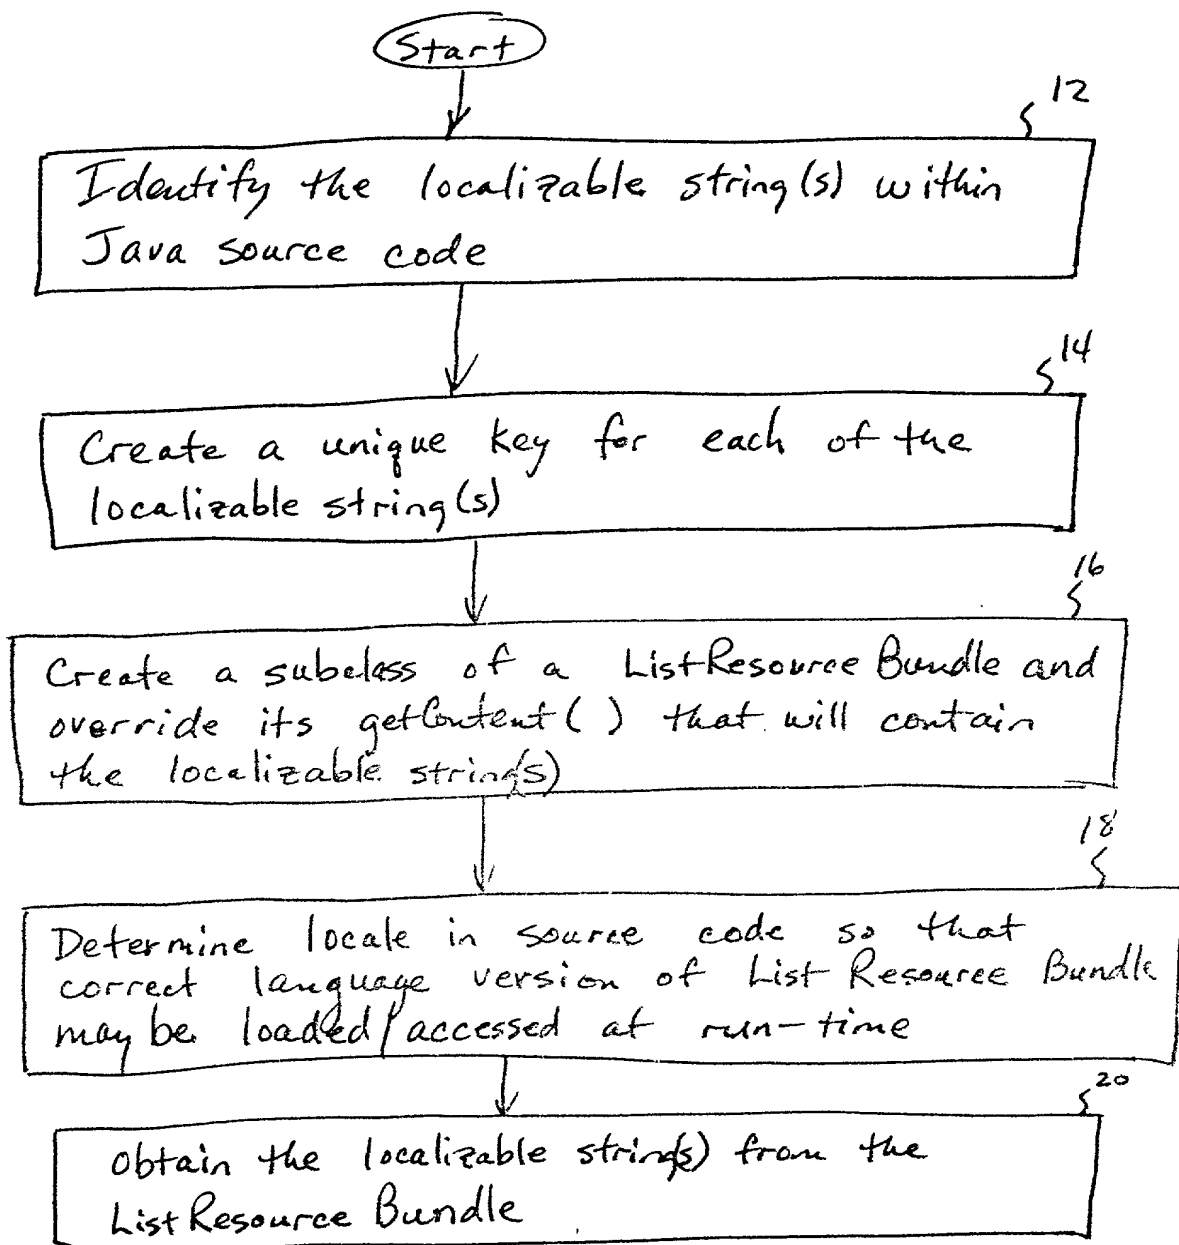 Start
12
Identify the localizable string(s) within
Java source code
14
Create a unique key for each of the
localizable string(s)
16
Create a subclass of a ListResource Bundle and
override its getContent( ) that will contain
the localizable string(s)
18
Determine locale in source code so that
correct language version of List Resource Bundle
may be loaded/accessed at run-time
20
obtain the localizable string(s) from the
List Resource Bundle